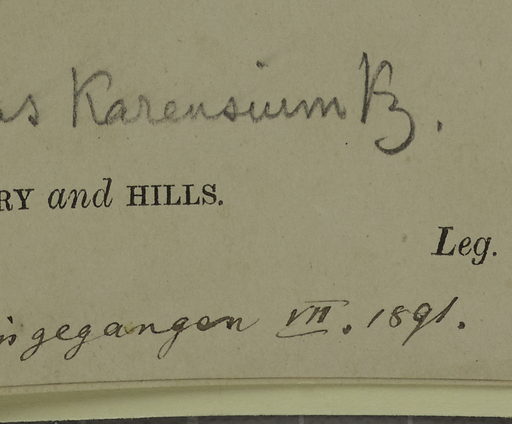 as Karensium Kz.
RY and HILLS.
Leg.
ingegangen VII. 1891.